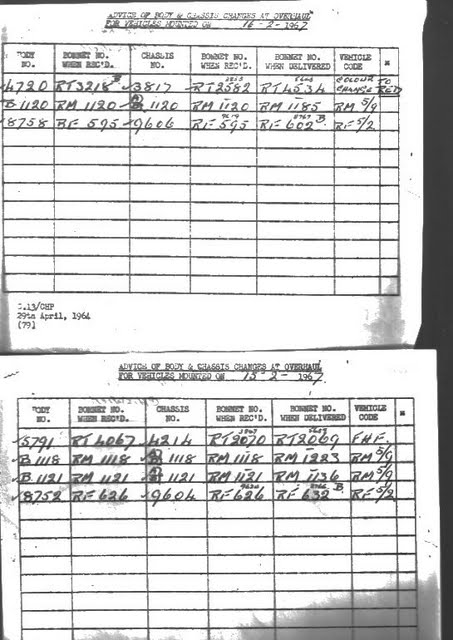 ADVICE OF BODY & CHASSIS CHANGES AT OVERHAUL
FOR VEHICLES MOUNTED ON 16-2-1967
BODY NO. BONNET NO. WHEN REC'D. CHASSIS NO. BONNET NO. WHEN REC'D. BONNET NO. WHEN DELIVERED VEHICLE CODE *
4720 RT3218 B 3817 RT2582 RT4534 COLOUR CHANGE TO RED
B 1120 RM 1120 1120 RM 1120 RM 1185 RM 5/9
8758 RF 595 9606 RF 595 RF 602 B RF 5/2
29th April, 1964
(79)
ADVICE OF BODY & CHASSIS CHANGES AT OVERHAUL
FOR VEHICLES MOUNTED ON 15-2-1967
BODY NO. BONNET NO. WHEN REC'D. CHASSIS NO. BONNET NO. WHEN REC'D. BONNET NO. WHEN DELIVERED VEHICLE CODE *
5791 RT4067 4214 RT2070 RT2069 FHF.
B 1118 RM 1118 1118 RM 1118 RM 1223 RM 5/9
B 1121 RM 1121 1121 RM 1121 RM 1136 RM 5/9
8752 RF 626 9604 RF 626 RF 632 B RF 5/2